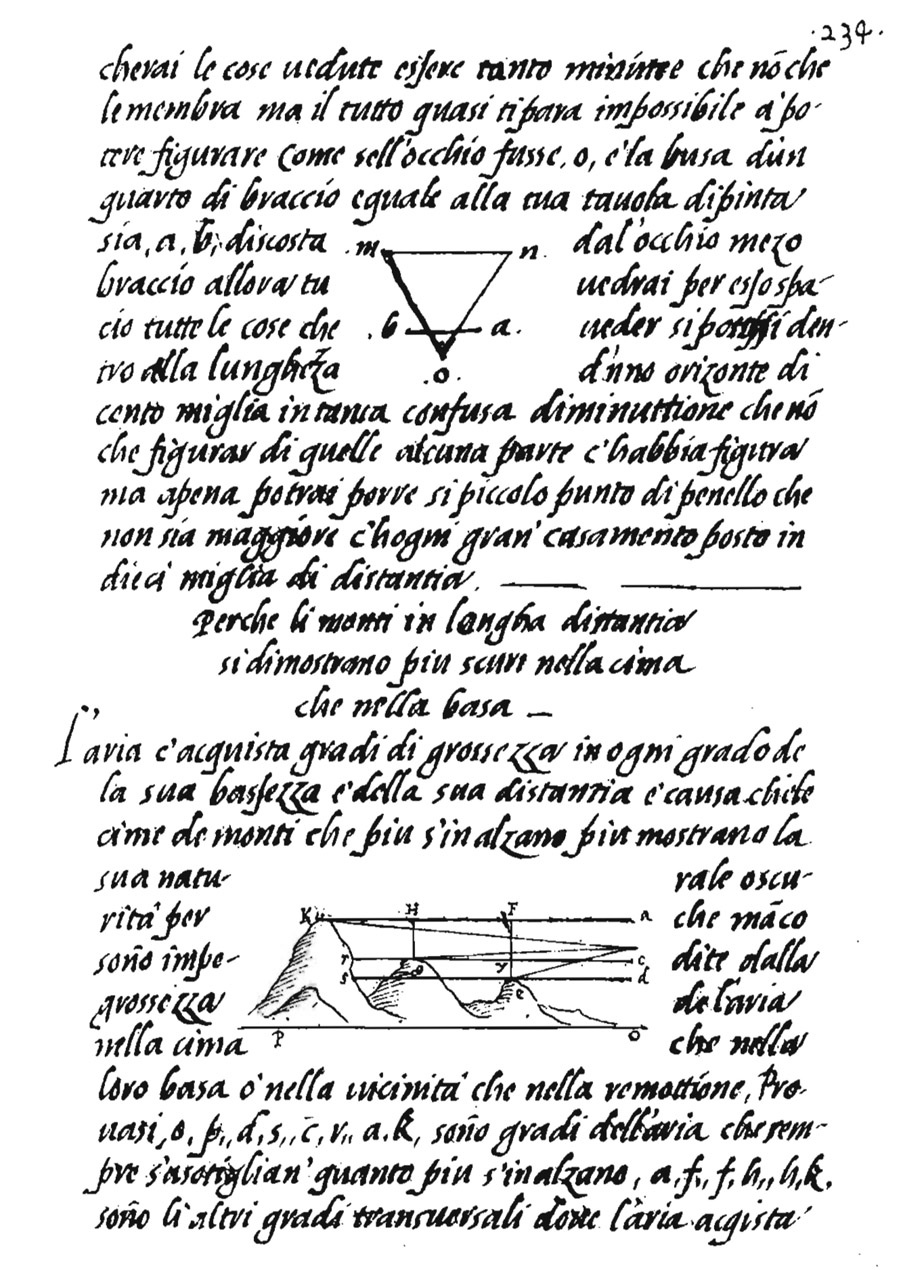 .234.
cherai le cose uedute essere tanto minime che nō che
le membra ma il tutto quasi ti para impossibile a' po-
tere figurare Come se ll'occhio fusse, o, e' la busa d'un
quarto di braccio eguale alla tua tauola dipinta
sia, a, b, discosta .m n. dal'occhio mezo
braccio allora tu uedrai per esso spa-
cio tutte le cose che .b a. ueder si den-
tro alla lunghezza .o. d'uno orizonte di
cento miglia in tanta confusa diminuttione che nō
che figurar di quelle alcuna parte c'habbia figura
ma apena potrai porre si piccolo punto di penello che
non sia maggiore c'hogni gran' casamento posto in
dieci miglia di distantia.
Perche li monti in longha distantia
si dimostrano piu scuri nella cima
che nella basa
L'aria c'acquista gradi di grossezza in ogni grado de
la sua bassezza e' della sua distantia e' causa che le
cime de monti che piu s'inalzano piu mostrano la
sua natu- rale oscu-
rità per K H F a che māco
soño īmpe- r g y c dite dalla
grossezza s e d de l'aria
nella cima P O che nella
loro basa o' nella uicinità che nella remottione, Pro-
uasi, o, p,, d, s,, c, r,, a. k, soño gradi dell'aria che sem-
pre s'asottiglian' quanto piu s'inalzano, a, f,, f, h,, h, k,
soño li altri gradi transuersali doue l'aria acqista